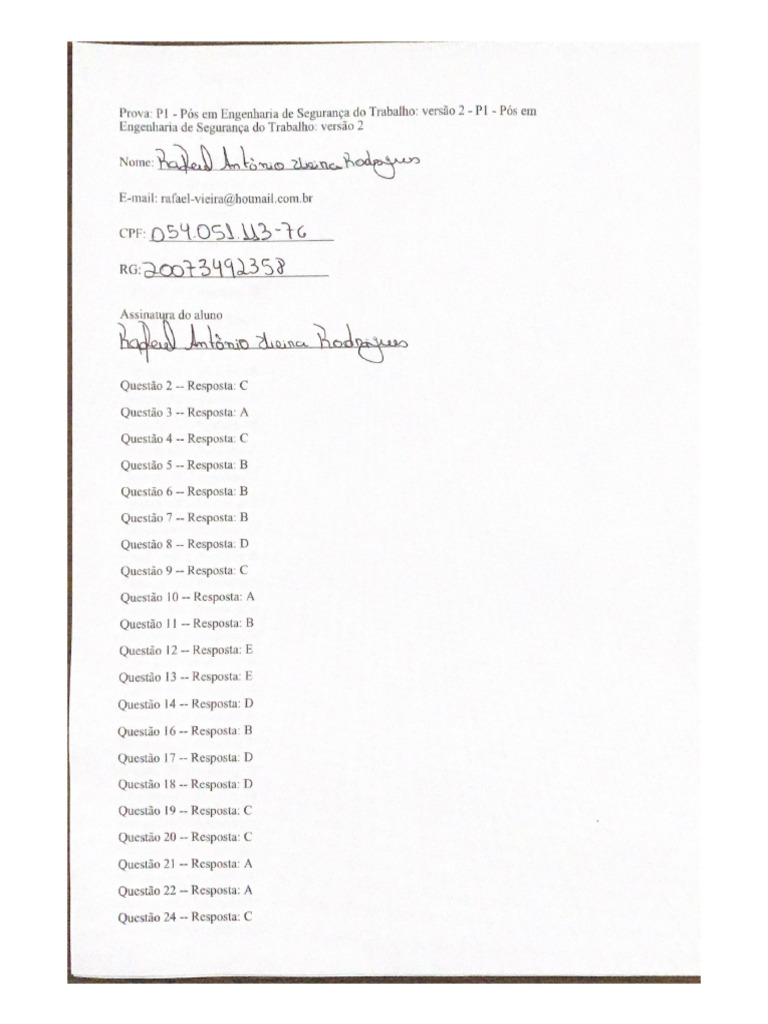 Prova: P1 - Pós em Engenharia de Segurança do Trabalho: versão 2 - P1 - Pós em
Engenharia de Segurança do Trabalho: versão 2
Nome: Rafael Antônio Vieira Rodrigues
E-mail: rafael-vieira@hotmail.com.br
CPF: 054.051.113-76
RG: 20073492358
Assinatura do aluno
Rafael Antônio Vieira Rodrigues
Questão 2 -- Resposta: C
Questão 3 -- Resposta: A
Questão 4 -- Resposta: C
Questão 5 -- Resposta: B
Questão 6 -- Resposta: B
Questão 7 -- Resposta: B
Questão 8 -- Resposta: D
Questão 9 -- Resposta: C
Questão 10 -- Resposta: A
Questão 11 -- Resposta: B
Questão 12 -- Resposta: E
Questão 13 -- Resposta: E
Questão 14 -- Resposta: D
Questão 16 -- Resposta: B
Questão 17 -- Resposta: D
Questão 18 -- Resposta: D
Questão 19 -- Resposta: C
Questão 20 -- Resposta: C
Questão 21 -- Resposta: A
Questão 22 -- Resposta: A
Questão 24 -- Resposta: C